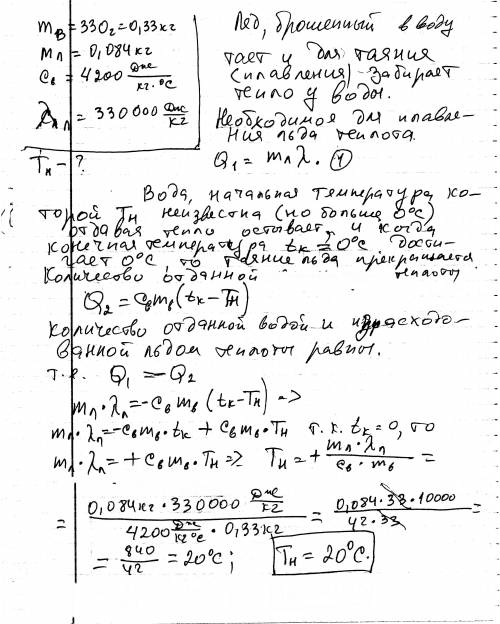 mв = 330г = 0,33кг
mл = 0,084кг
cв = 4200 Дж/кг·°C
λл = 330000 Дж/кг
Tн - ?
Лед, брошенный в воду
тает и для таяния
(плавления) забирает
тепло у воды.
Необходимое для плавле-
ния льда теплота.
Q1 = mл λ. (1)
Вода, начальная температура ко-
торой Tн неизвестна (но больше 0°C)
отдавая тепло остывает, и когда
конечная температура tк = 0°C дости-
гает 0°C, то таяние льда прекращается
Количество отданной теплоты
Q2 = cв mв (tк - Tн)
количество отданной водой и израсходо-
ванной льдом теплоты равны.
т.е. Q1 = -Q2
mл·λл = -cв mв (tк - Tн) =>
mл·λл = -cв mв·tк + cв mв·Tн т.к. tк = 0, то
mл·λл = + cв mв·Tн => Tн = + mл·λл / cв·mв =
= 0,084кг·330000 Дж/кг / 4200 Дж/кг°C · 0,33кг = 0,084·33·10000 / 42·33 =
= 840/42 = 20°C; Tн = 20°C.